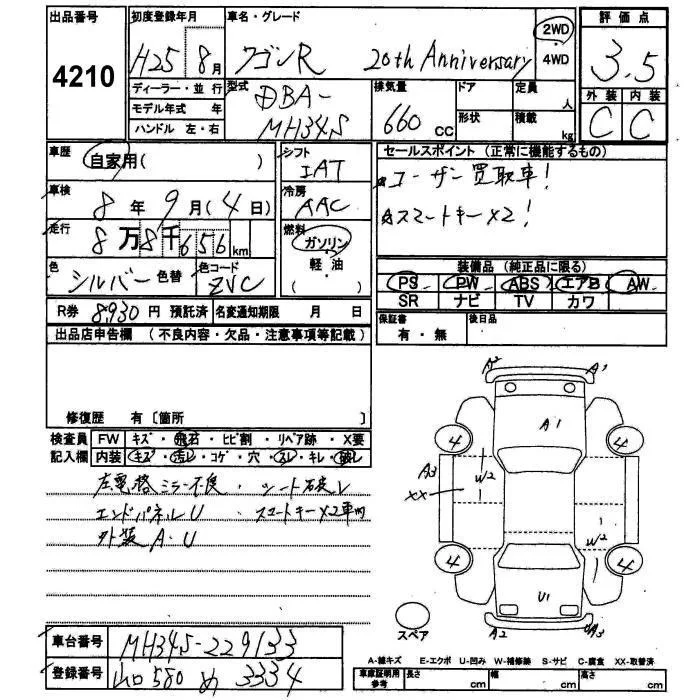 出品番号 4210
初度登録年月 H25 8月
車名・グレード ワゴンR 20th Anniversary
2WD ・ 4WD
評価点 3.5
外装 C 内装 C
ディーラー・並行
モデル年式 年
ハンドル 左・右
型式 DBA-MH34S
排気量 660 CC
ドア 形状
定員 人 積載 kg
車歴 自家用( )
シフト IAT
車検 8年 9月(4日)
冷房 AAC
走行 8万8千656km
燃料 ガソリン 軽・油 ( )
色 シルバー 色替
色コード ZVC
R券 8930円 預託済 名変通知期限 月 日
セールスポイント (正常に機能するもの)
☆ユーザー買取車!
☆スマートキーX2!
装備品 (純正品に限る)
PS PW ABS エアB AW
SR ナビ TV カワ
保証書 有・無
後日品
出品店申告欄 (不良内容・欠品・注意事項等記載)
修復歴 有〔箇所 〕
検査員記入欄
FW キズ・飛石・ヒビ割・リペア跡・X要
内装 キズ・汚レ・コゲ・穴・スレ・キレ・破レ
左電格ミラー不良・シート破レ
エンドパネルU ・スマートキーX2車内
外装A・U
A2 A1
A1
4 4
A3 XX W2
W2
4 4
U1
A2 UA3
スペア
車台番号 MH34S-229133
登録番号 山口 580 め 3334
A-線キズ E-エクボ U-凹み W-補修跡 S-サビ C-腐食 XX-取替済
車庫証明用参考 長さ cm 幅 cm 高さ cm